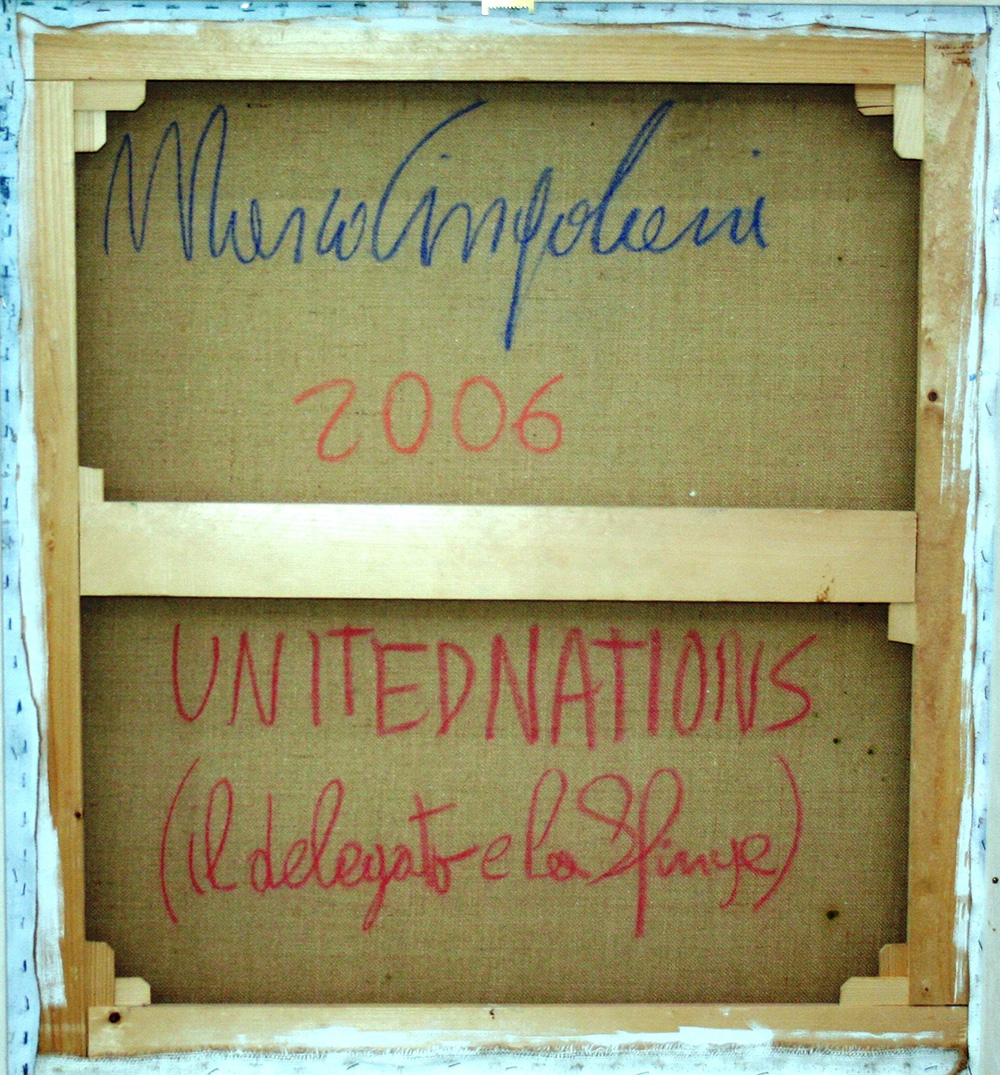 Marco Cingolani
2006
UNITED NATIONS
(il delegato e la Sfinge)